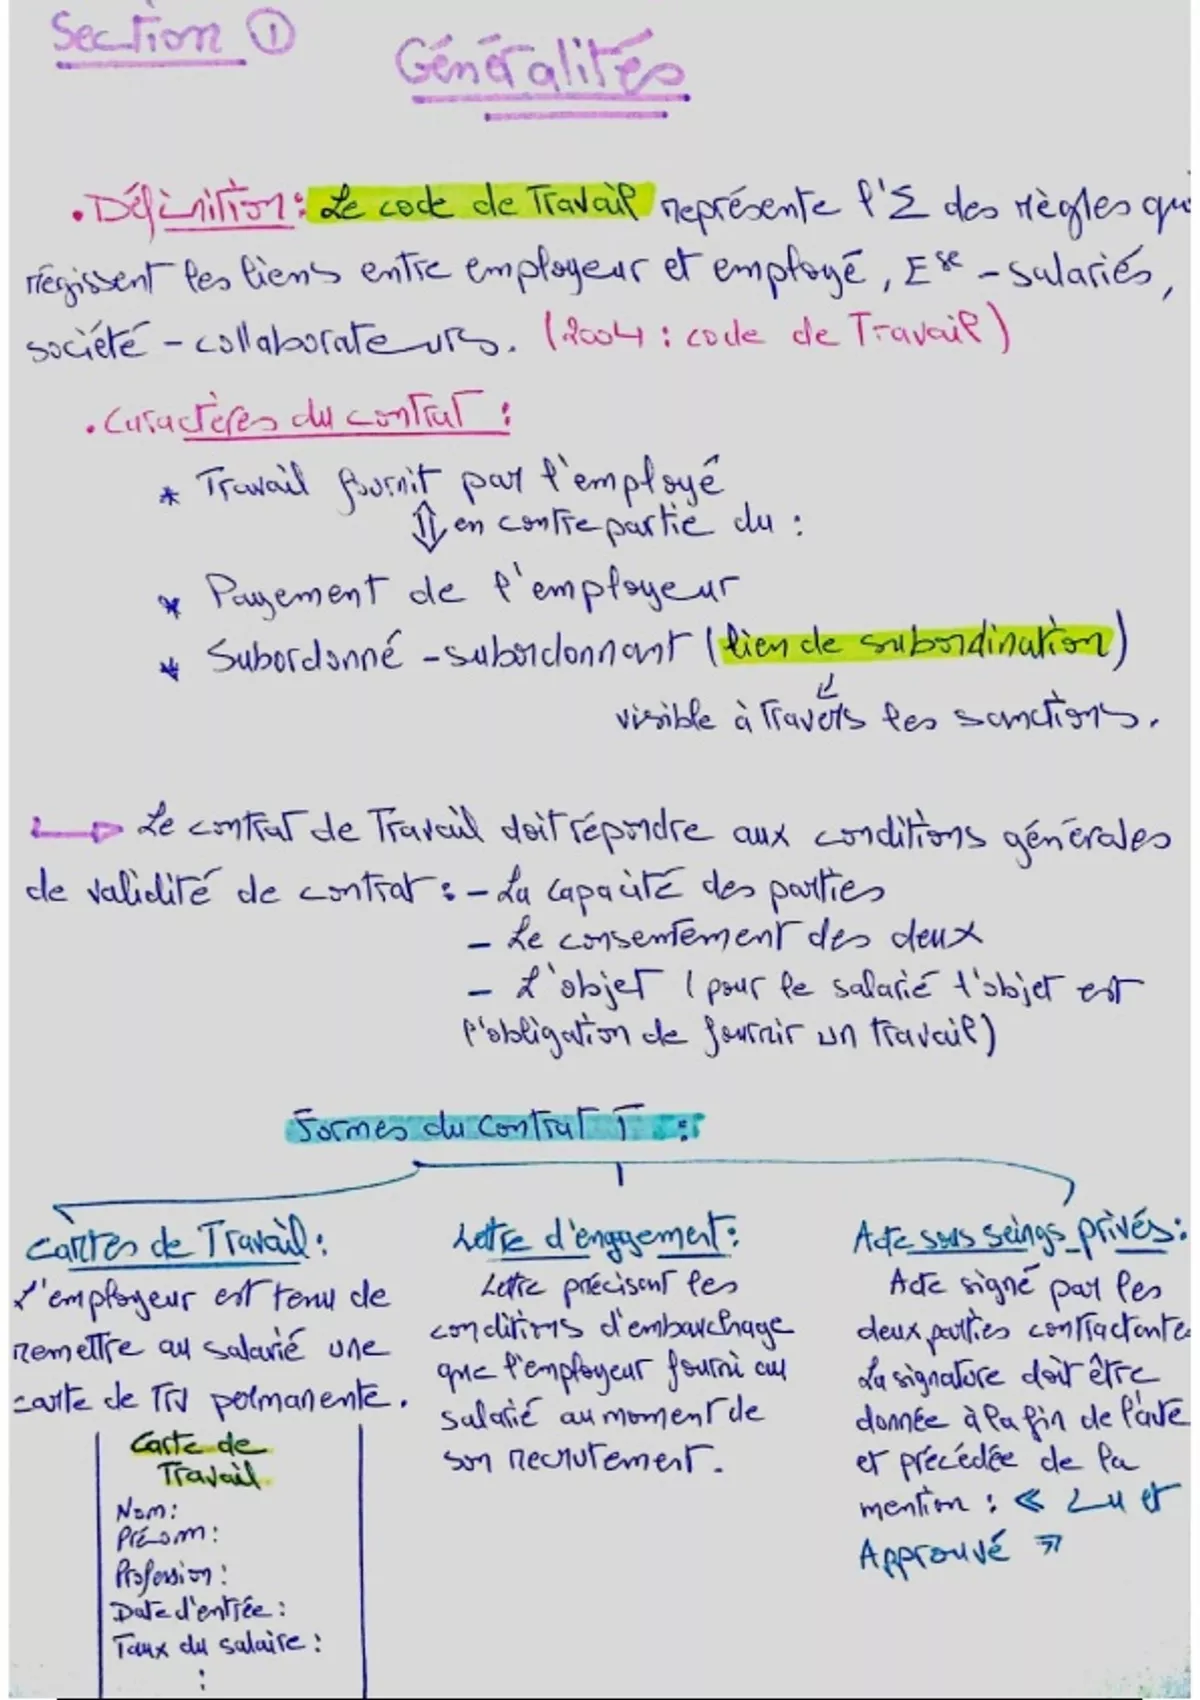 Section ①
Généralités
• Définition : Le code de Travail représente l'Σ des règles qui
régissent les liens entre employeur et employé, Ese - salariés,
société - collaborateurs. (2004 : code de Travail)
• Caractères du contrat :
* Travail fournit par l'employé
⇕ en contre partie du :
* Payement de l'employeur
* Subordonné - subordonnant (lien de subordination)
↙
visible à travers les sanctions.
→ Le contrat de Travail doit répondre aux conditions générales
de validité de contrat : - La capacité des parties
- Le consentement des deux
- L'objet (pour le salarié l'objet est
l'obligation de fournir un travail)
Formes du contrat T :
Cartes de Travail :
L'employeur est tenu de
remettre au salarié une
carte de TRV permanente.
Carte de
Travail
Nom :
Prénom :
Profession :
Date d'entrée :
Taux du salaire :
:
Lettre d'engagement :
Lettre précisant les
conditions d'embauchage
que l'employeur fourni au
salarié au moment de
son recrutement.
Acte sous seings privés :
Acte signé par les
deux parties contractante
La signature doit être
donnée à la fin de l'acte
et précédée de la
mention : « Lu et
Approuvé »